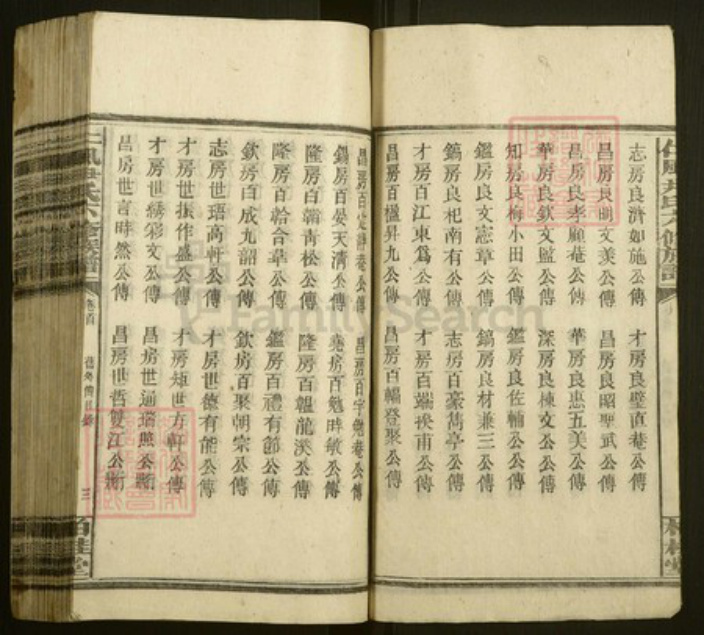 志房良濟如施公傳 才房良璧直菴公傳
昌房良明文美公傳 昌房良昭聖武公傳
昌房良孝顧菴公傳 華房良惠五美公傳
華房良欽文監公傳 深房良棟文公公傳
知房良梅小田公傳 鑑房良佐輔公公傳
鑑房良文憲章公傳 鎬房良材兼三公傳
鎬房良杞南有公傳 志房百豪雋亭公傳
才房百江東為公傳 才房百端甫公傳
昌房百楹昇九公傳 昌房百幅登聚公傳
昌房百定靜菴公傳 昌房百宇勉菴公傳
錫房百晏天清公傳 堯房百勉時敏公傳
隆房百翰青松公傳 隆房百韞龍溪公傳
隆房百翰合華公傳 鑑房百禮有節公傳
欽房百成九韶公傳 欽房百聚朝宗公傳
志房世珸高軒公傳 才房世德有能公傳
才房世振作盛公傳 才房世矩世方軒公傳
才房世綉彩文公傳 昌房世迵瑞照公傳
昌房世言時然公傳 昌房世哲雙江公傳
尹氏六修族譜
卷首
三
柏桂堂
FamilySearch